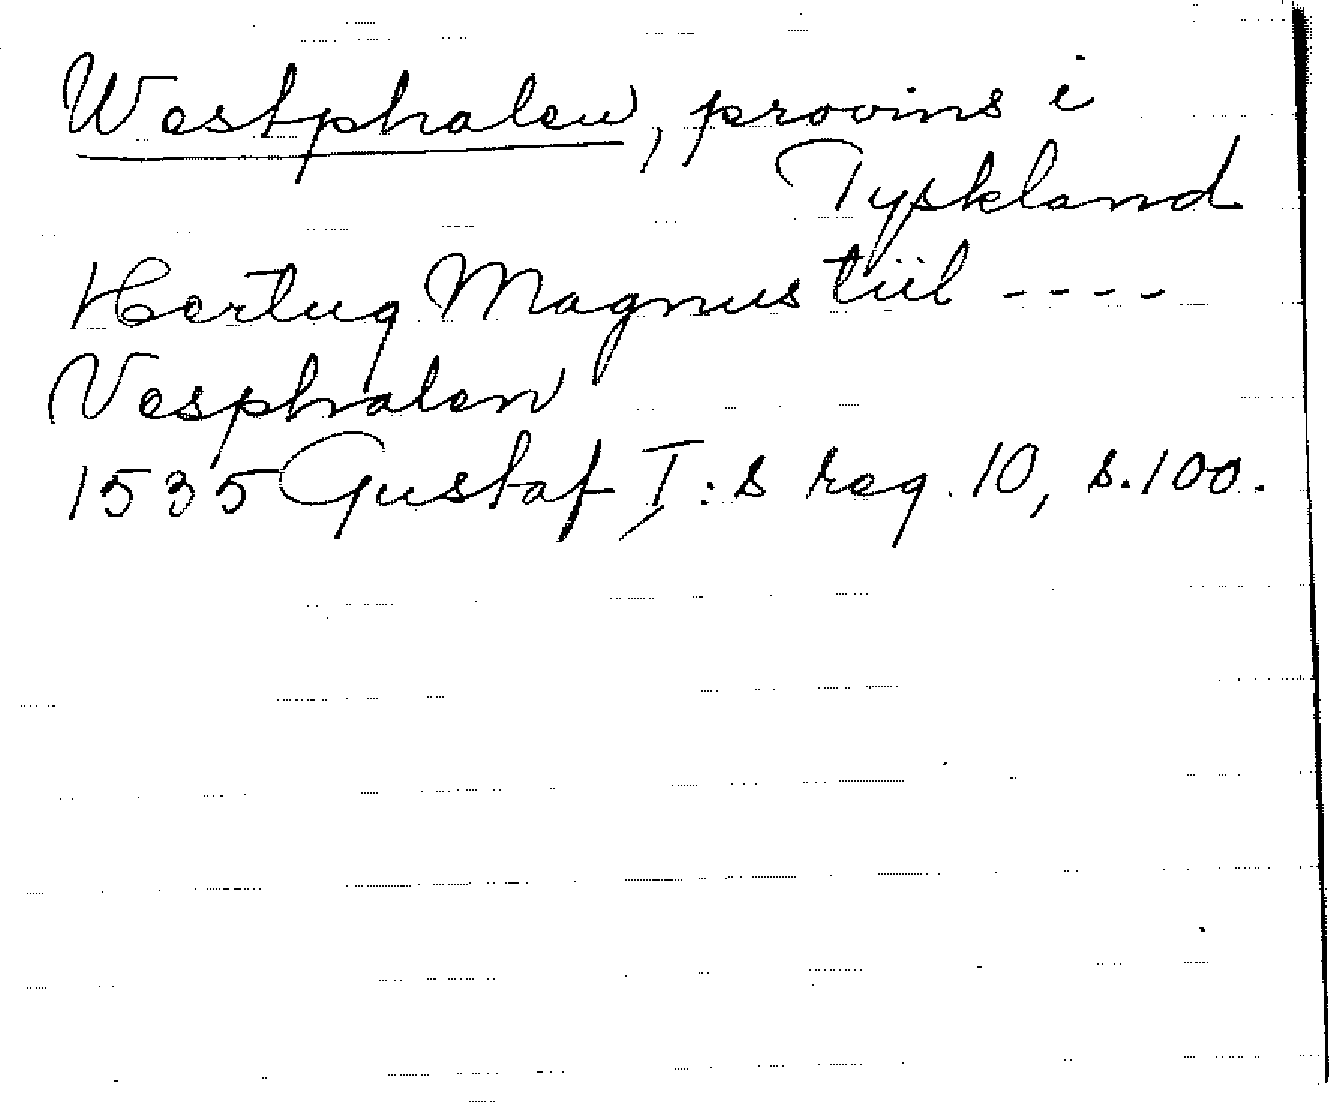 Westphalen, provins i
Tyskland
Hertug Magnus tiil ----
Vesphalen
1535 Gustaf I:s reg. 10, s. 100.